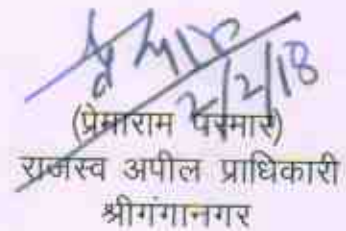 2/2/18
(प्रेमाराम परमार)
राजस्व अपील प्राधिकारी
श्रीगंगानगर